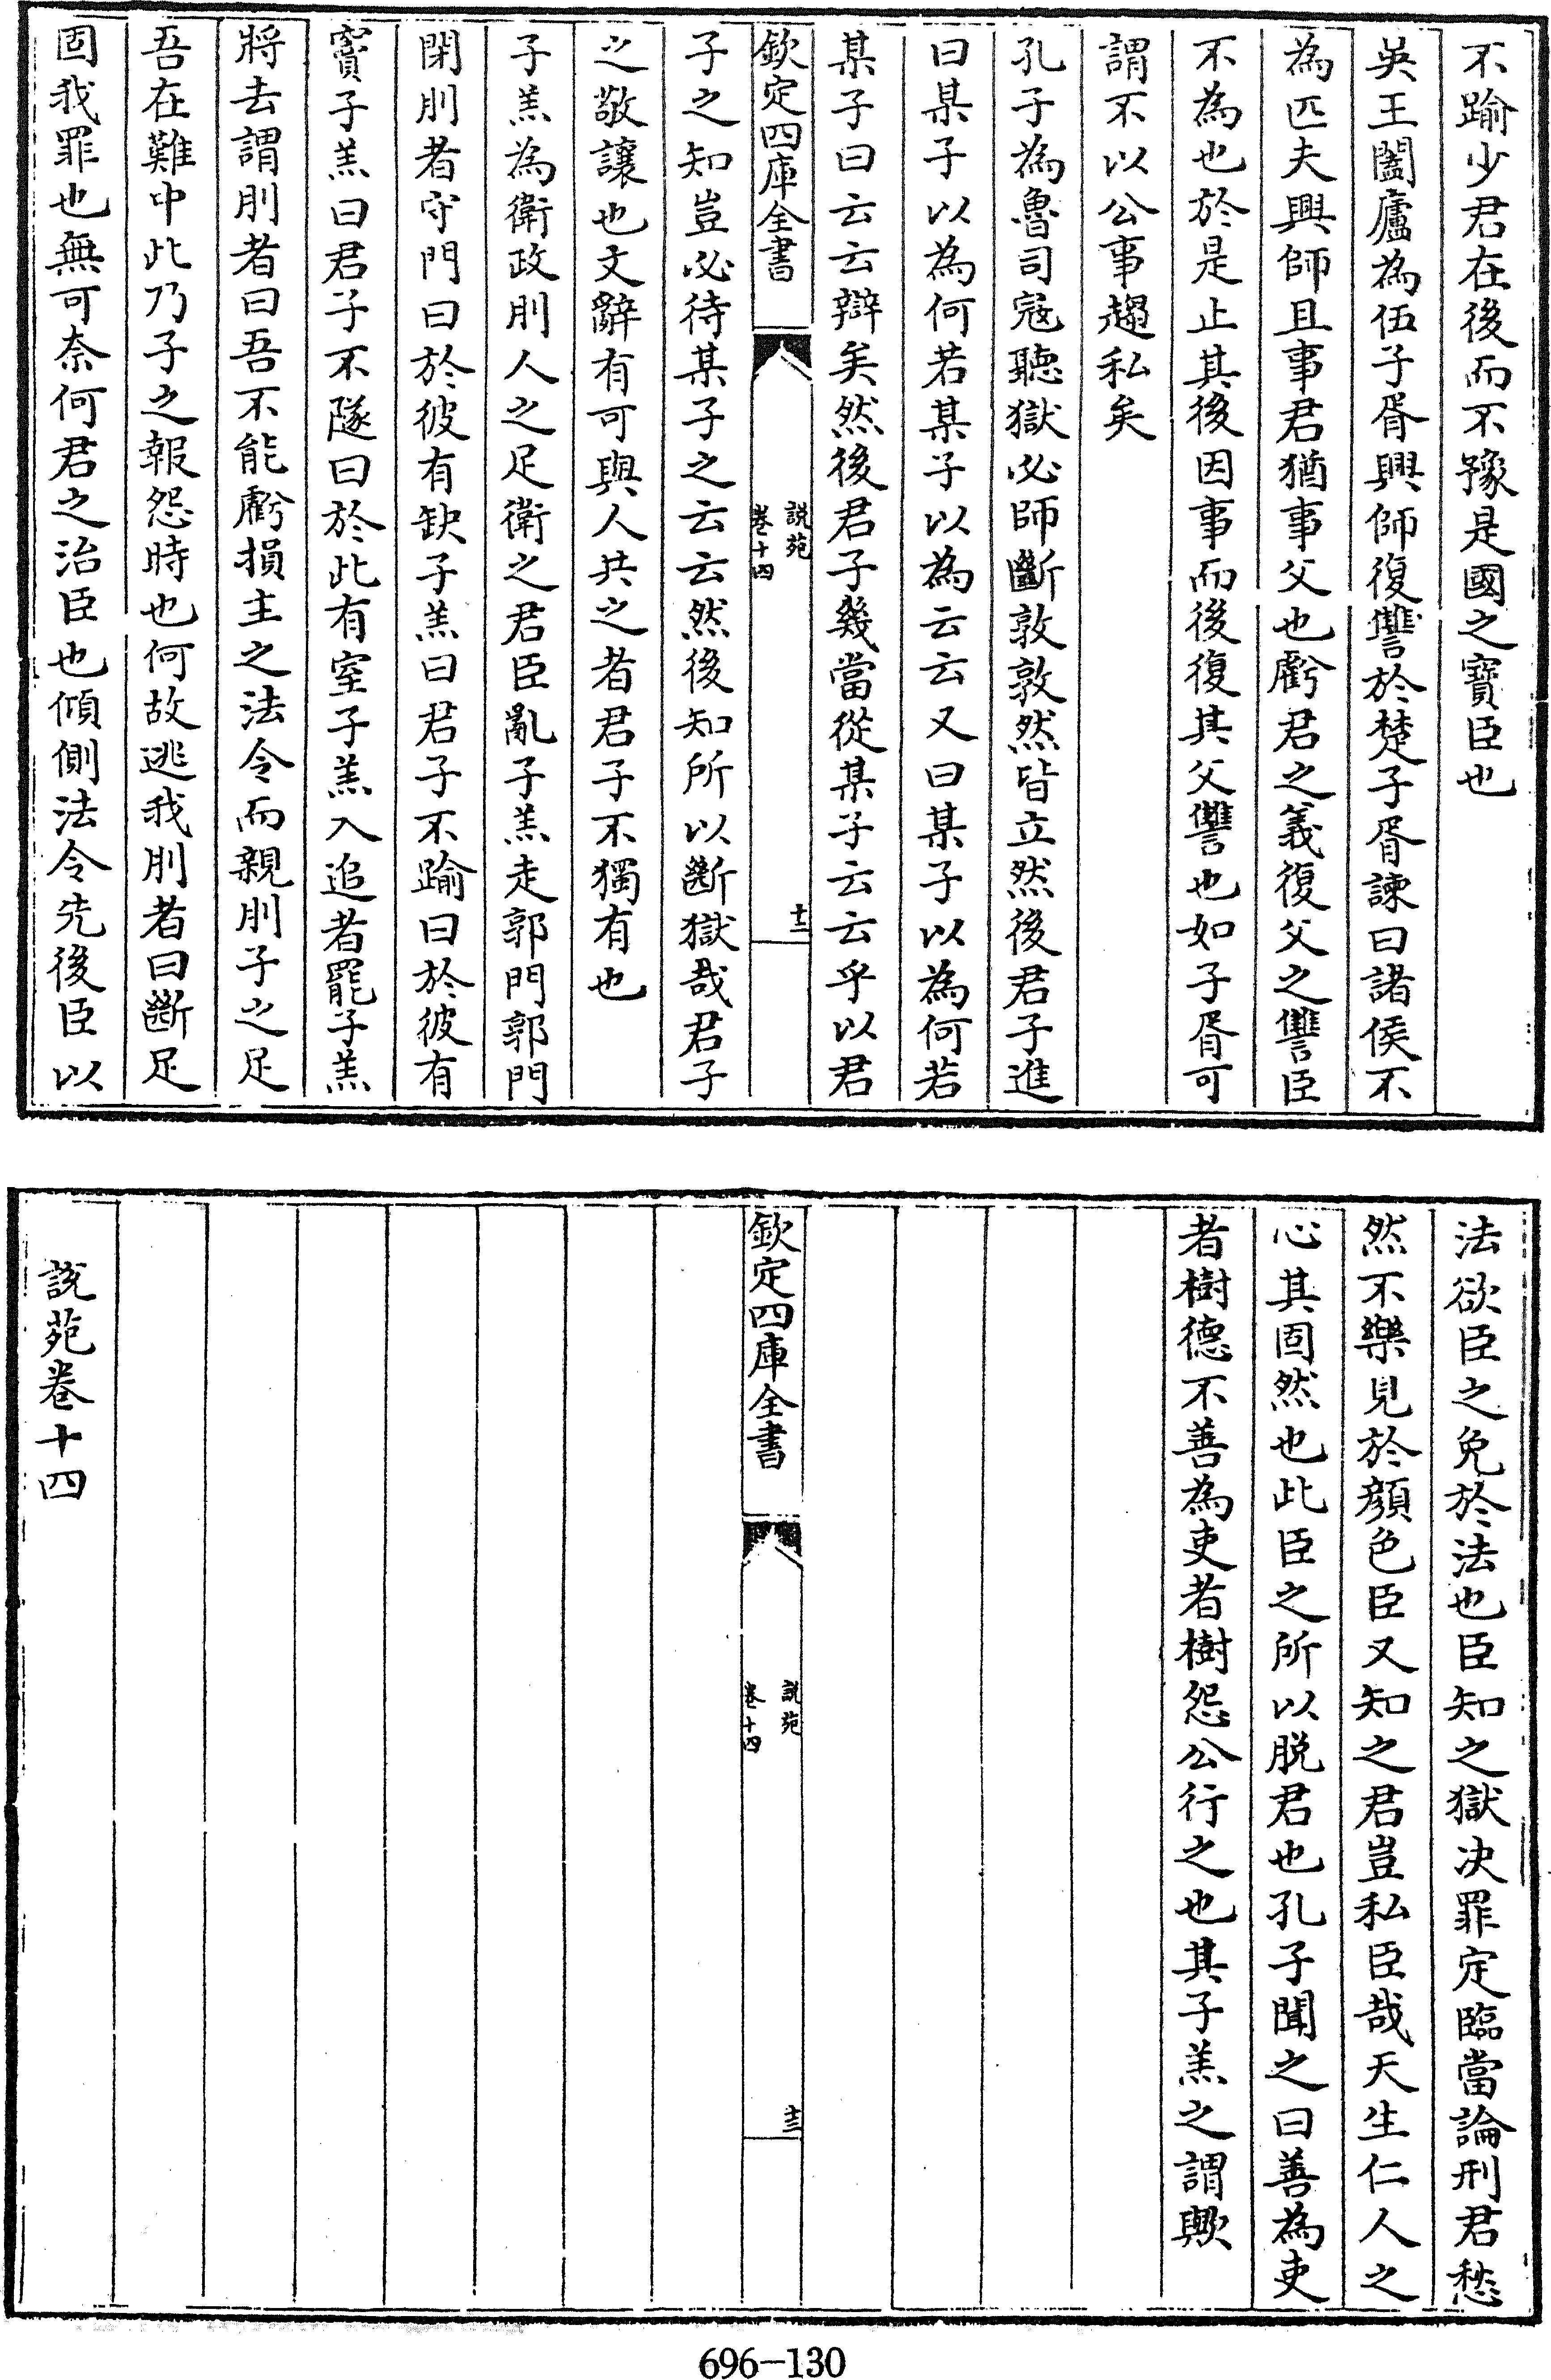 不踰少君在後而不豫是國之寶臣也
吳王闔廬為伍子胥興師復讐於楚子胥諫曰諸侯不
為匹夫興師且事君猶事父也虧君之義復父之讐臣
不為也於是止其後因事而後復其父讐也如子胥可
謂不以公事趨私矣
孔子為魯司寇聽獄必師斷敦敦然皆立然後君子進
曰某子以為何若某子以為云云又曰某子以為何若
某子曰云云辯矣然後君子幾當從某子云云乎以君
欽定四庫全書
說苑
卷十四
十二
子之知豈必待某子之云云然後知所以斷獄哉君子
之敬讓也文辭有可與人共之者君子不獨有也
子羔為衛政刖人之足衛之君臣亂子羔走郭門郭門
閉刖者守門曰於彼有缺子羔曰君子不踰曰於彼有
竇子羔曰君子不隧曰於此有室子羔入追者罷子羔
將去謂刖者曰吾不能虧損主之法令而親刖子之足
吾在難中此乃子之報怨時也何故逃我刖者曰斷足
固我罪也無可奈何君之治臣也傾側法令先後臣以
法欲臣之免於法也臣知之獄决罪定臨當論刑君愁
然不樂見於顏色臣又知之君豈私臣哉天生仁人之
心其固然也此臣之所以脱君也孔子聞之曰善為吏
者樹德不善為吏者樹怨公行之也其子羔之謂歟
欽定四庫全書
說苑
卷十四
十三
說苑卷十四
696-130